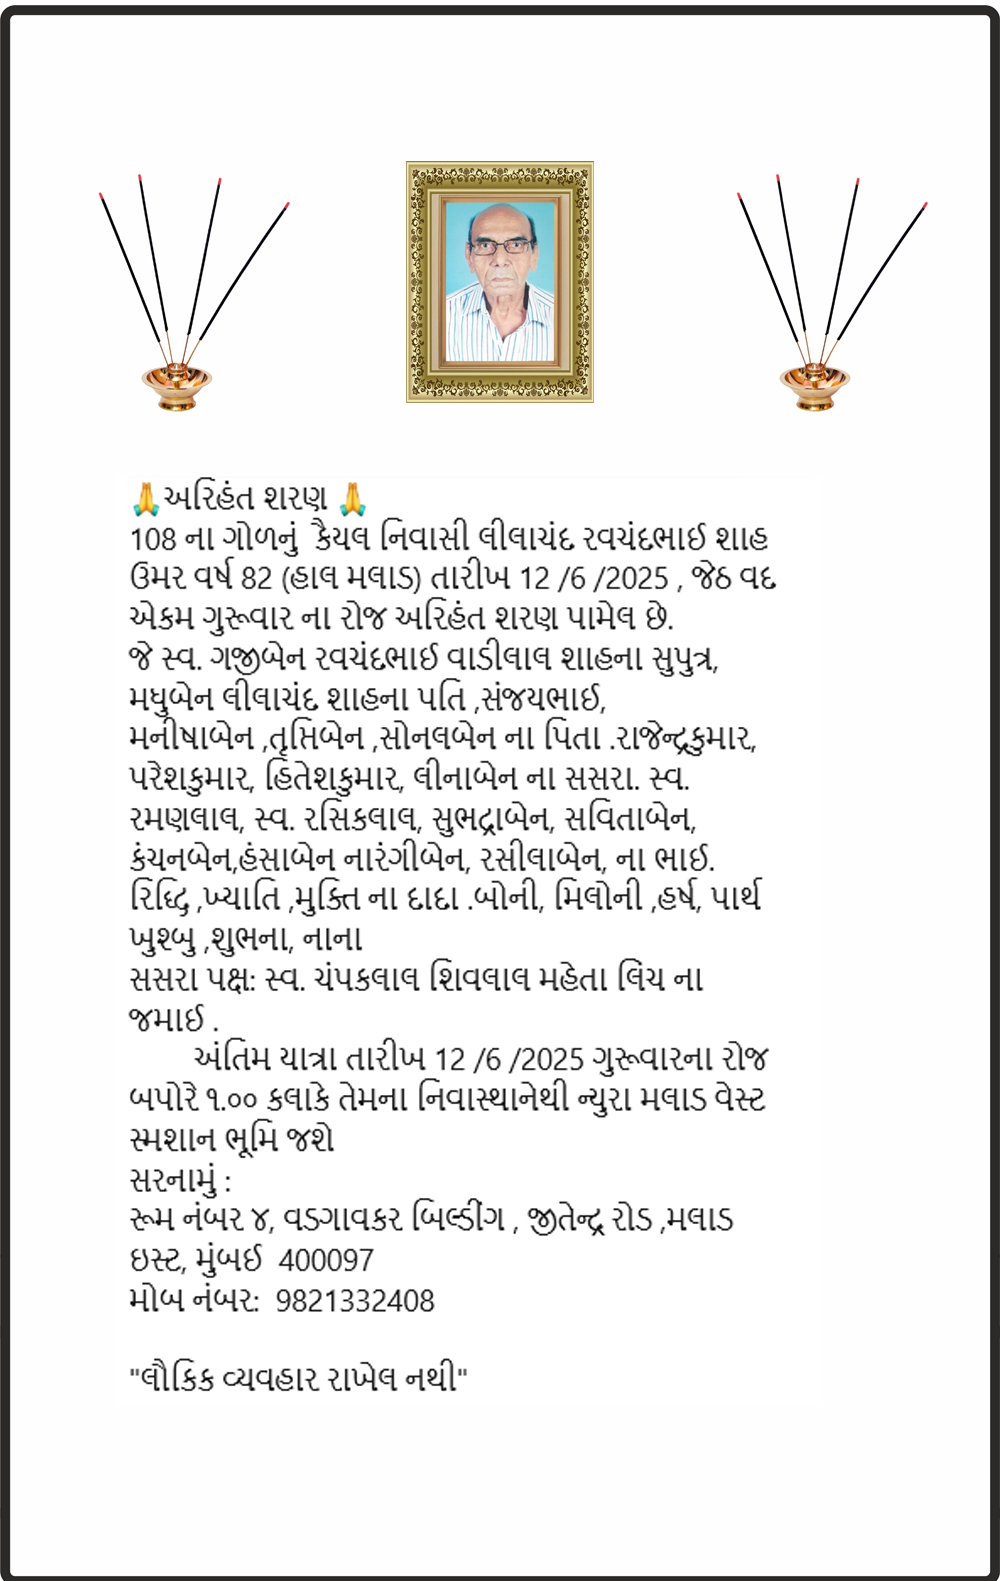 🙏અરિહંત શરણ 🙏
108 ના ગોળનું કૈયલ નિવાસી લીલાચંદ રવચંદભાઈ શાહ
ઉમર વર્ષ 82 (હાલ મલાડ) તારીખ 12 /6 /2025 , જેઠ વદ
એકમ ગુરૂવાર ના રોજ અરિહંત શરણ પામેલ છે.
જે સ્વ. ગજીબેન રવચંદભાઈ વાડીલાલ શાહના સુપુત્ર,
મધુબેન લીલાચંદ શાહના પતિ ,સંજયભાઈ,
મનીષાબેન ,તૃપ્તિબેન ,સોનલબેન ના પિતા .રાજેન્દ્રકુમાર,
પરેશકુમાર, હિતેશકુમાર, લીનાબેન ના સસરા. સ્વ.
રમણલાલ, સ્વ. રસિકલાલ, સુભદ્રાબેન, સવિતાબેન,
કંચનબેન,હંસાબેન નારંગીબેન, રસીલાબેન, ના ભાઈ.
રિધ્ધિ ,ખ્યાતિ ,મુક્તિ ના દાદા .બોની, મિલોની ,હર્ષ, પાર્થ
ખુશ્બુ ,શુભના, નાના
સસરા પક્ષ: સ્વ. ચંપકલાલ શિવલાલ મહેતા લિચ ના
જમાઈ .
અંતિમ યાત્રા તારીખ 12 /6 /2025 ગુરૂવારના રોજ
બપોરે ૧.૦૦ કલાકે તેમના નિવાસ્થાનેથી ન્યુરા મલાડ વેસ્ટ
સ્મશાન ભૂમિ જશે
સરનામું :
રૂમ નંબર ૪, વડગાવકર બિલ્ડીંગ , જીતેન્દ્ર રોડ ,મલાડ
ઇસ્ટ, મુંબઈ 400097
મોબ નંબર: 9821332408
"લૌકિક વ્યવહાર રાખેલ નથી"